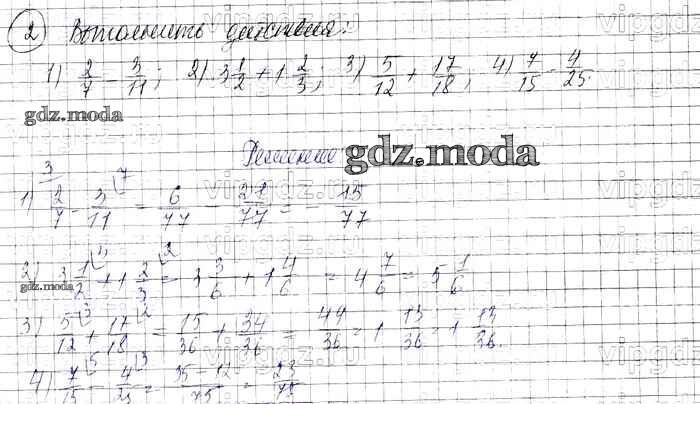 2 Выполнить действия:
1) 2/7 - 3/11; 2) 3 1/2 + 1 2/3; 3) 5/12 + 17/18; 4) 7/15 - 4/25.
gdz.moda
Решение gdz.moda
1) 2/7 - 3/11 = 6/77 - 21/77 = - 15/77
2) 3 1/2 + 1 2/3 = 3 3/6 + 1 4/6 = 4 7/6 = 5 1/6
gdz.moda
3) 5/12 + 17/18 = 15/36 + 34/36 = 49/36 = 1 13/36 = 1 13/36.
4) 7/15 - 4/25 = 35-12/75 = 23/75